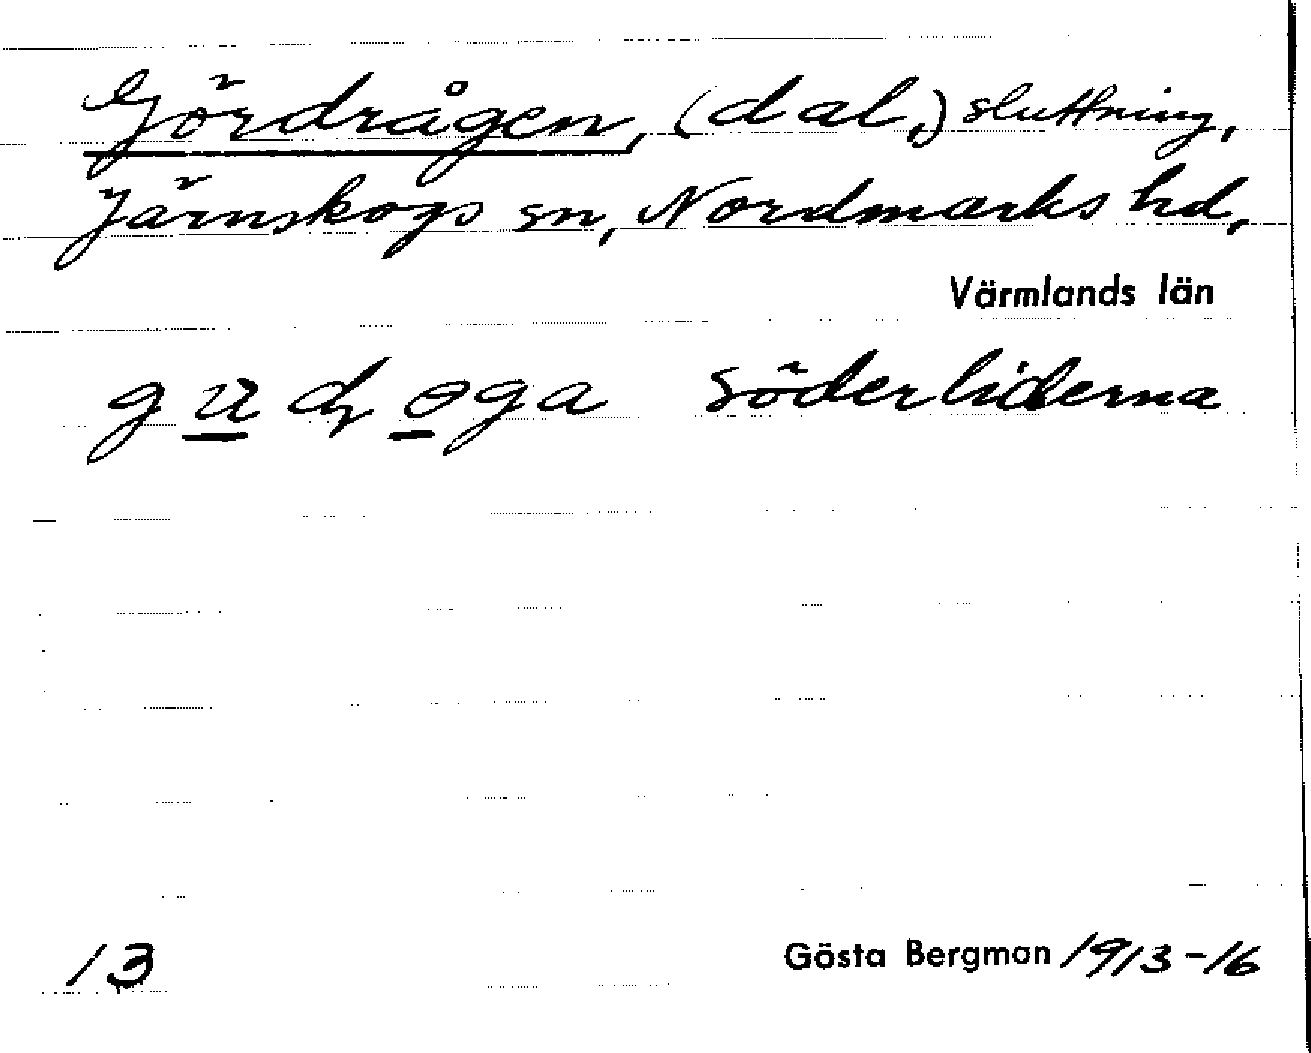 Gördrågen, (dal,) sluttning,
Järnskogs sn, Nordmarks hd,
Värmlands län
söderliderna
13
Gösta Bergman 1913-16